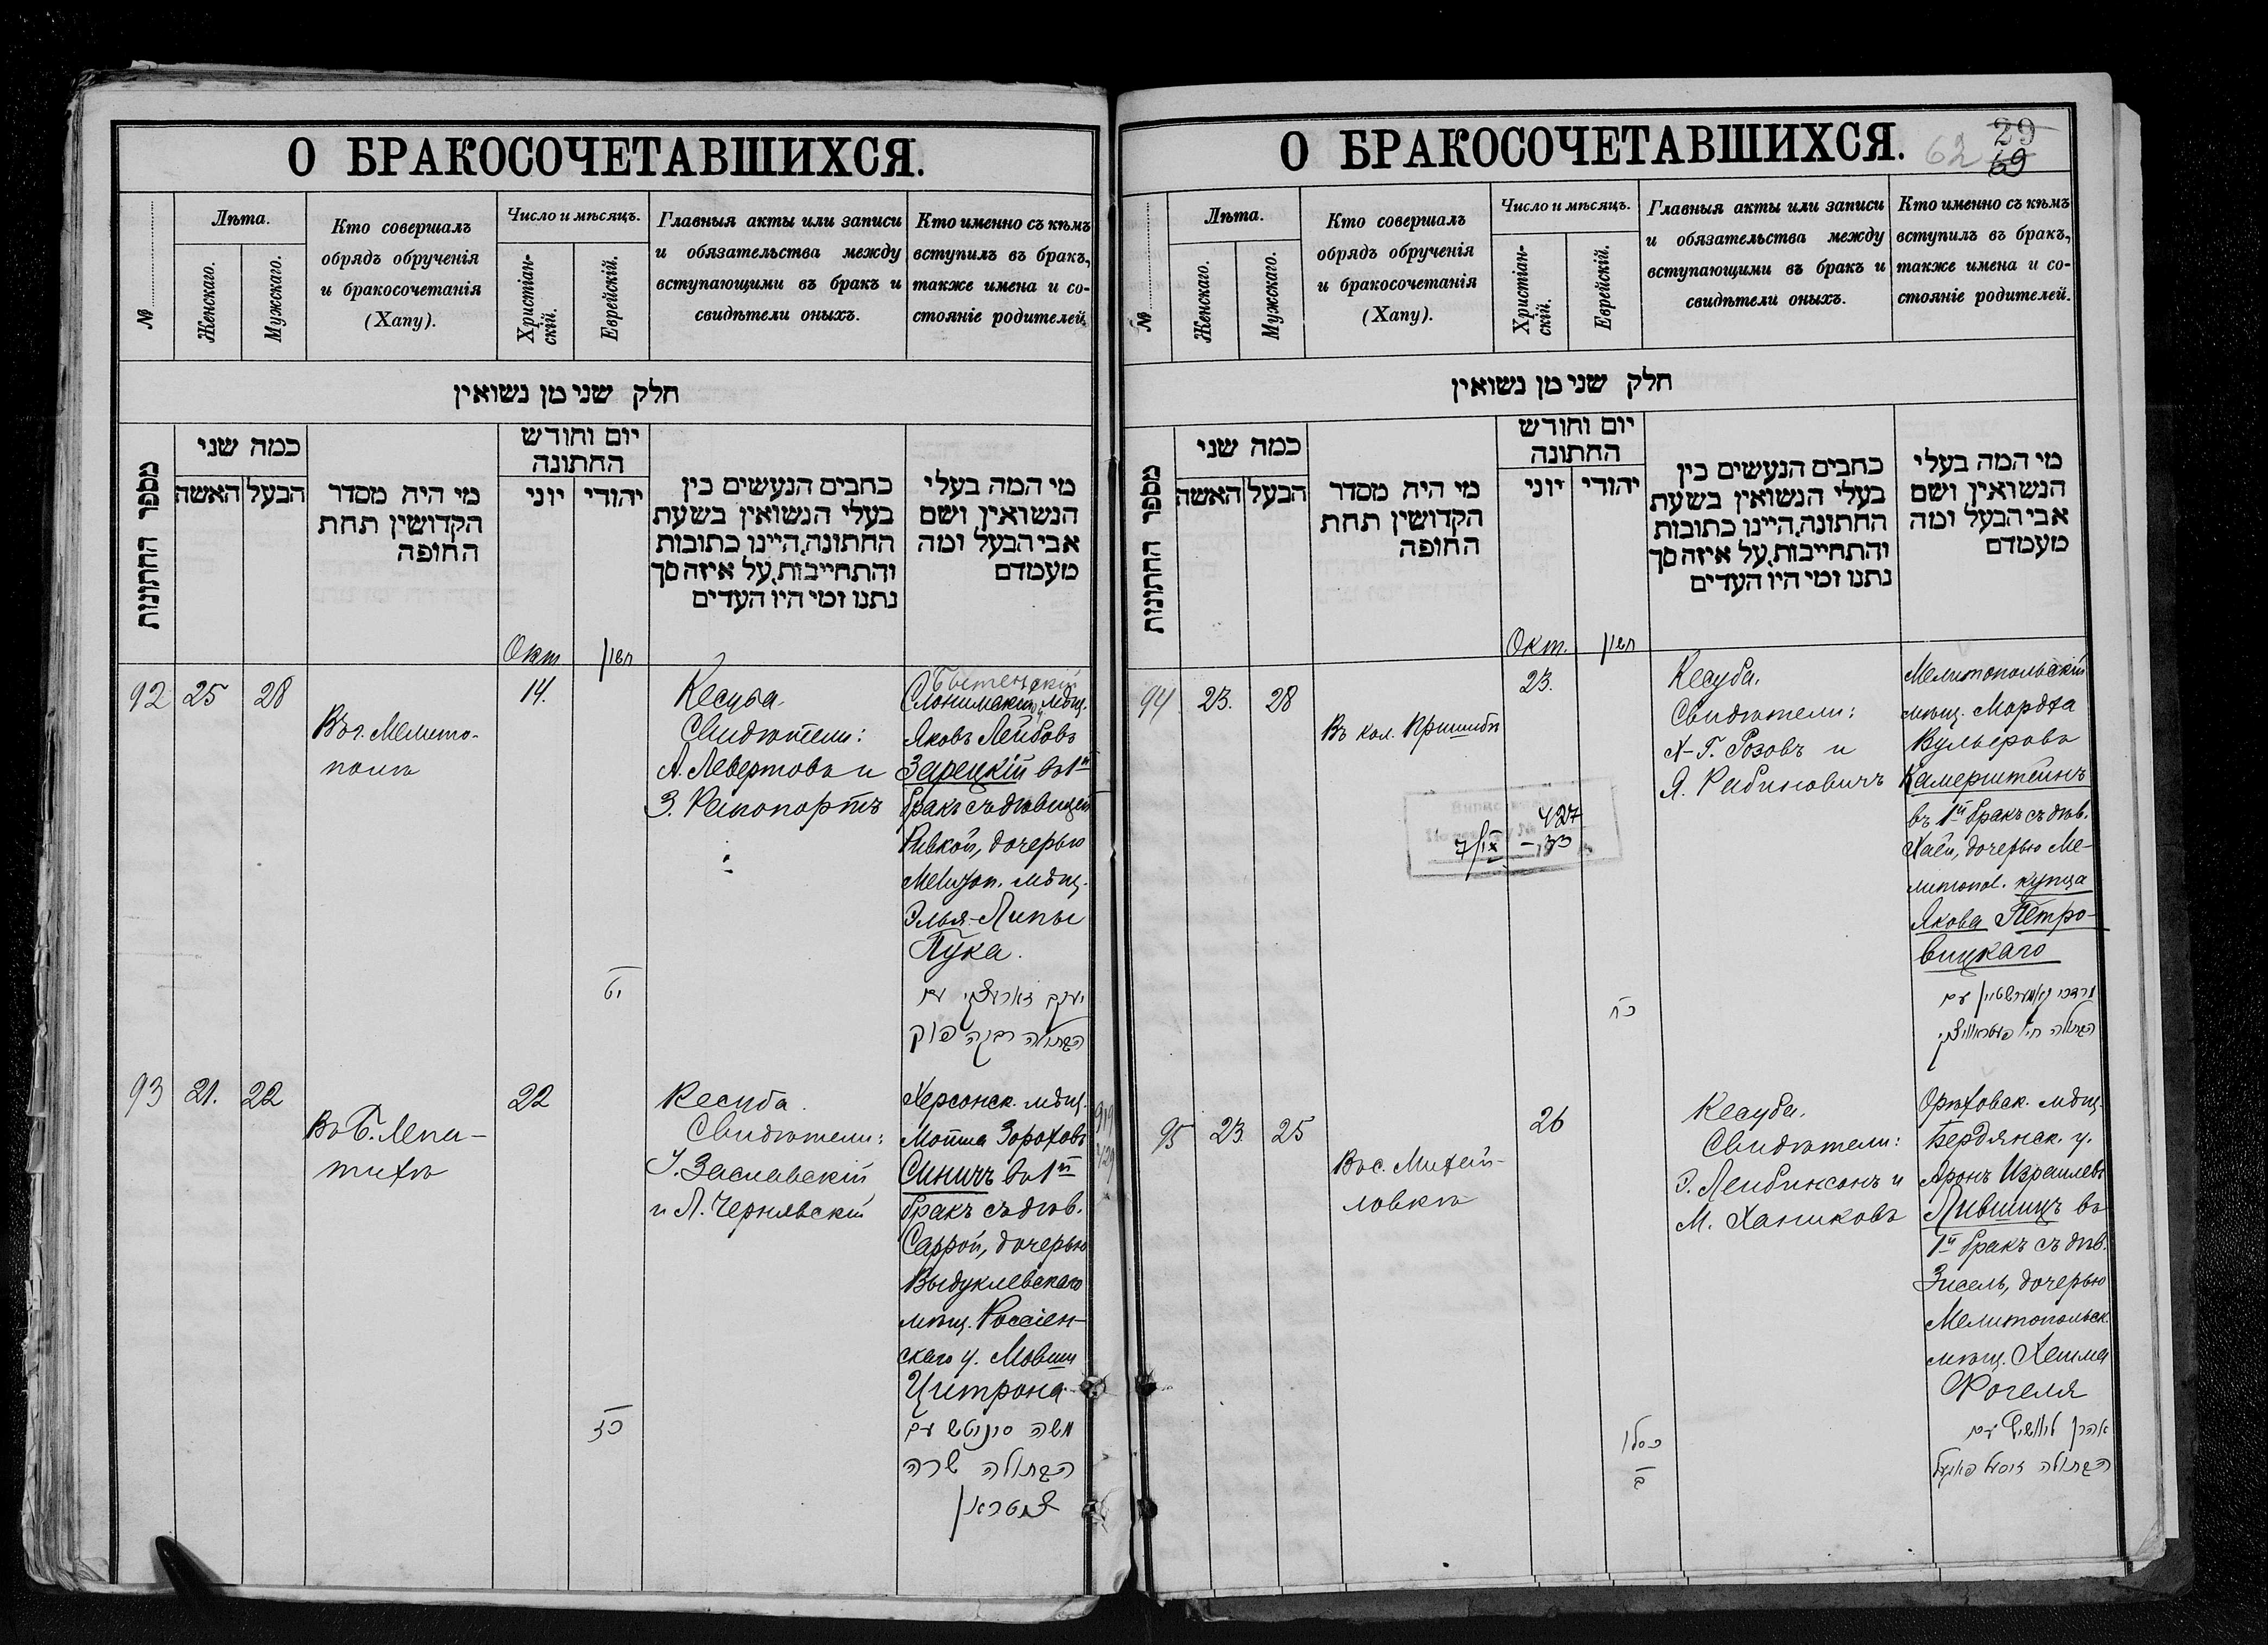 О БРАКОСОЧЕТАВШИХСЯ.
№
Лѣта.
Женскаго.
Мужскаго.
Кто совершалъ
обрядъ обрученія
и бракосочетанія
(Хапу).
Число и мѣсяцъ.
Христіан-
скій.
Еврейскій.
Главныя акты или записи
и обязательства между
вступающими въ бракъ и
свидѣтели оныхъ.
Кто именно съ кѣмъ
вступилъ въ бракъ,
также имена и со-
стояніе родителей.
חלק שני מן נשואין
מספר החתונות
כמה שני
האשה
הבעל
מי היה מסדר
הקדושין תחת
החופה
יום וחודש
החתונה
יוני
יהודי
כתבים הנעשים בין
בעלי הנשואין בשעת
החתונה, היינו כתובות
והתחייבות, על איזה סך
נתנו ומי היו העדים
מי המה בעלי
הנשואין ושם
אבי הבעל ומה
מעמדם
Окт.
חשון
92
25
28
Въ г. Мелито-
полѣ
14.
יט
Кесуба.
Свидѣтели:
А. Левертовъ и
З. Рапопортъ
Бытенскій
Слонимскій у. мѣщ.
Яковъ Лейбовъ
Зарецкій въ 1й
бракъ съ дѣвицей
Ривкой, дочерью
Мелитоп. мѣщ.
Элья-Липы
Пука.
יעקב זארעצקי עם
הבתולה רבקה פוק
93
21.
22
Въ Б. Лепа-
тихѣ
22
כז
Кесуба.
Свидѣтели:
І. Заславскій
и Л. Чернявскій
Херсонск. мѣщ.
Мовша Зороховъ
Синичъ въ 1й
бракъ съ дѣв.
Саррой, дочерью
Выдуклевскаго
мѣщ. Россіен-
скаго у. Мовши
Цитрона
משה סיניטש עם
הבתולה שרה
ציטראן
О БРАКОСОЧЕТАВШИХСЯ.
62
29
69
№
Лѣта.
Женскаго.
Мужскаго.
Кто совершалъ
обрядъ обрученія
и бракосочетанія
(Хапу).
Число и мѣсяцъ.
Христіан-
скій.
Еврейскій.
Главныя акты или записи
и обязательства между
вступающими въ бракъ и
свидѣтели оныхъ.
Кто именно съ кѣмъ
вступилъ въ бракъ,
также имена и со-
стояніе родителей.
חלק שני מן נשואין
מספר החתונות
כמה שני
האשה
הבעל
מי היה מסדר
הקדושין תחת
החופה
יום וחודש
החתונה
יוני
יהודי
כתבים הנעשים בין
בעלי הנשואין בשעת
החתונה, היינו כתובות
והתחייבות, על איזה סך
נתנו ומי היו העדים
מי המה בעלי
הנשואין ושם
אבי הבעל ומה
מעמדם
Окт.
חשון
94
23.
28
Въ кол. Пришибѣ
23.
427
7/IX – 33
כח
Кесуба.
Свидѣтели:
Х-Г. Розовъ и
Я. Рабиновичъ
Мелитопольскій
мѣщ. Мордха
Вульфовъ
Камерштейнъ
въ 1й бракъ съ дѣв.
Хаей, дочерью Ме-
литопол. купца
Якова Петро-
вицкаго
מרדכי קאמערשטיין עם
הבתולה חי' פעטראוויצקי
95
23
25
Въ с. Михай-
ловкѣ
26
כסלו
ב
Кесуба.
Свидѣтели:
Э. Лейбинсонъ и
М. Ханиковъ
Орѣховск. мѣщ.
Бердянск. у.
Аронъ Израилевъ
Лившицъ въ
1й бракъ съ дѣв.
Зисель, дочерью
Мелитопольск.
мѣщ. Хаима
Фогеля
אהרן ליוושיץ עם
הבתולה זיסל פאגעל